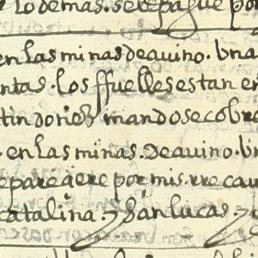 lo demas. se le pague por
en las minas de quino. una
ntas. los ffuelles estan en
tin dorich mando se cobre
. en las minas. de quino. un
parecere por mis. rrecau
catalina. y san lucas. y